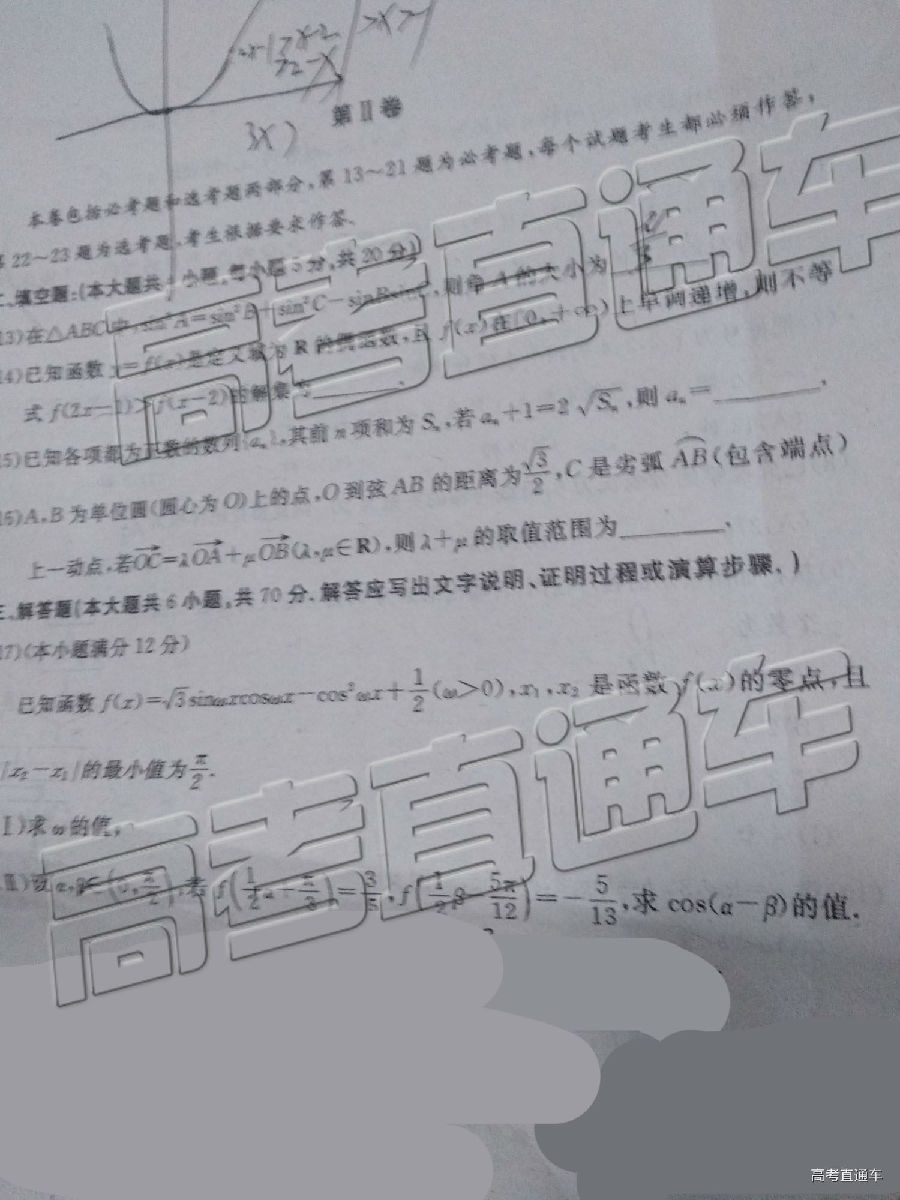 x-2
2-x
第Ⅱ卷
3x)
本卷包括必考题和选考题两部分,第13~21题为必考题,每个试题考生都必须作答;
22~23题为选考题,考生依据要求作答.
填空题:(本大题共 小题,每小题5分,共20分)
3)在△ABC中,sin²A=sin²B+sin²C-sinBsinC,则角A的大小为
4)已知函数y=f(x)是定义域为R的偶函数,且f(x)在[0,+∞)上单调递增,则不等
式f(2x-1)>f(x-2)的解集为________.
5)已知各项都为正数的数列{aₙ},其前n项和为Sₙ,若aₙ+1=2√Sₙ,则aₙ=________.
6)A,B为单位圆(圆心为O)上的点,O到弦AB的距离为√3/2,C是劣弧AB(包含端点)
上一动点,若OC=λOA+μOB(λ,μ∈R),则λ+μ的取值范围为________.
、解答题(本大题共6小题,共70分.解答应写出文字说明、证明过程或演算步骤.)
7)(本小题满分12分)
已知函数f(x)=√3sinωxcosωx-cos²ωx+1/2(ω>0),x₁,x₂是函数f(x)的零点,且
|x₂-x₁|的最小值为π/2.
Ⅰ)求ω的值;
Ⅱ)设α,β∈(0,π/2),若f(1/2α-π/3)=3/5,f(1/2β-5π/12)=-5/13,求cos(α-β)的值.
高考直通车
高考直通车
高考直通车